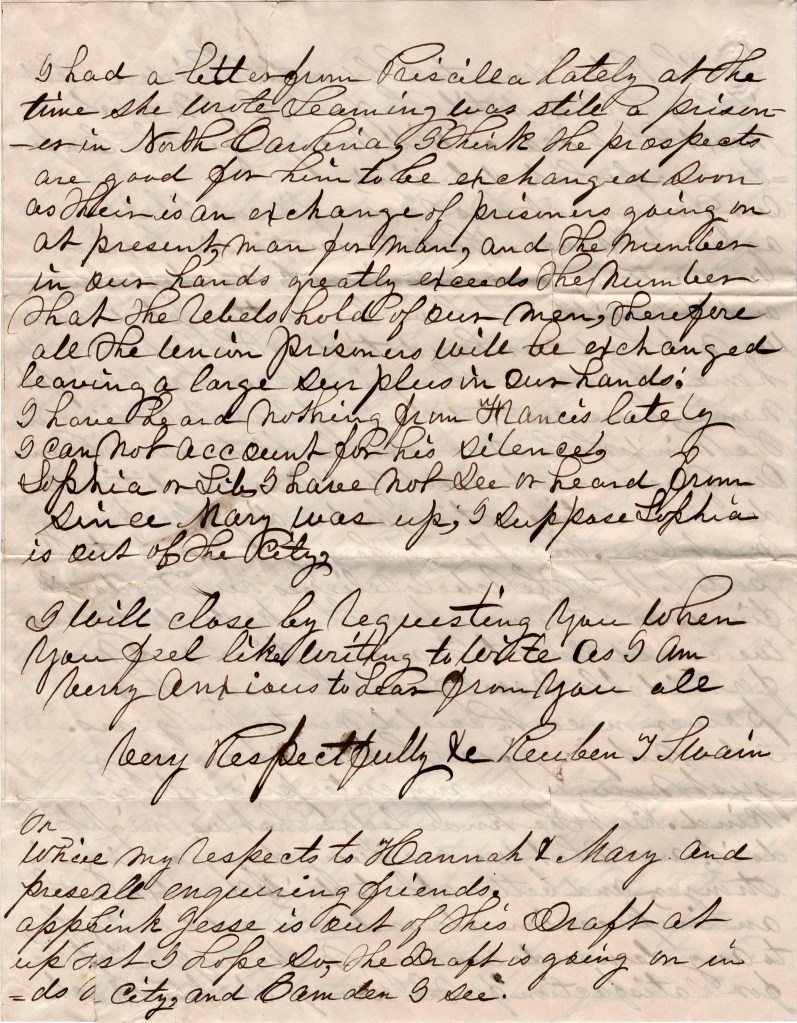 I had a letter from Priscilla lately at the
time she wrote Leaming was still a prison-
-er in North Carolina, I think the prospects
are good for him to be exchanged soon
as their is an exchange of prisoners going on
at present, man for man, and the number
in our hands greatly exceeds the number
that the rebels hold of our men, therefore
all the Union prisoners will be exchanged
leaving a large surplus in our hands.
I have heard nothing from Francis lately
I can not account for his silence,
Sophia or Lib, I have not see or heard from
since Mary was up, I suppose Sophia
is out of the City,
I will close by requesting you when
you feel like writing to write as I am
very anxious to hear from you all
Very Respectfully &c Reuben T Swain
On
my respects to Hannah & Mary and
all enquiring friends.
Jesse is out of this Draft at
I hope so, the Draft is going on in
City, and Camden I see.